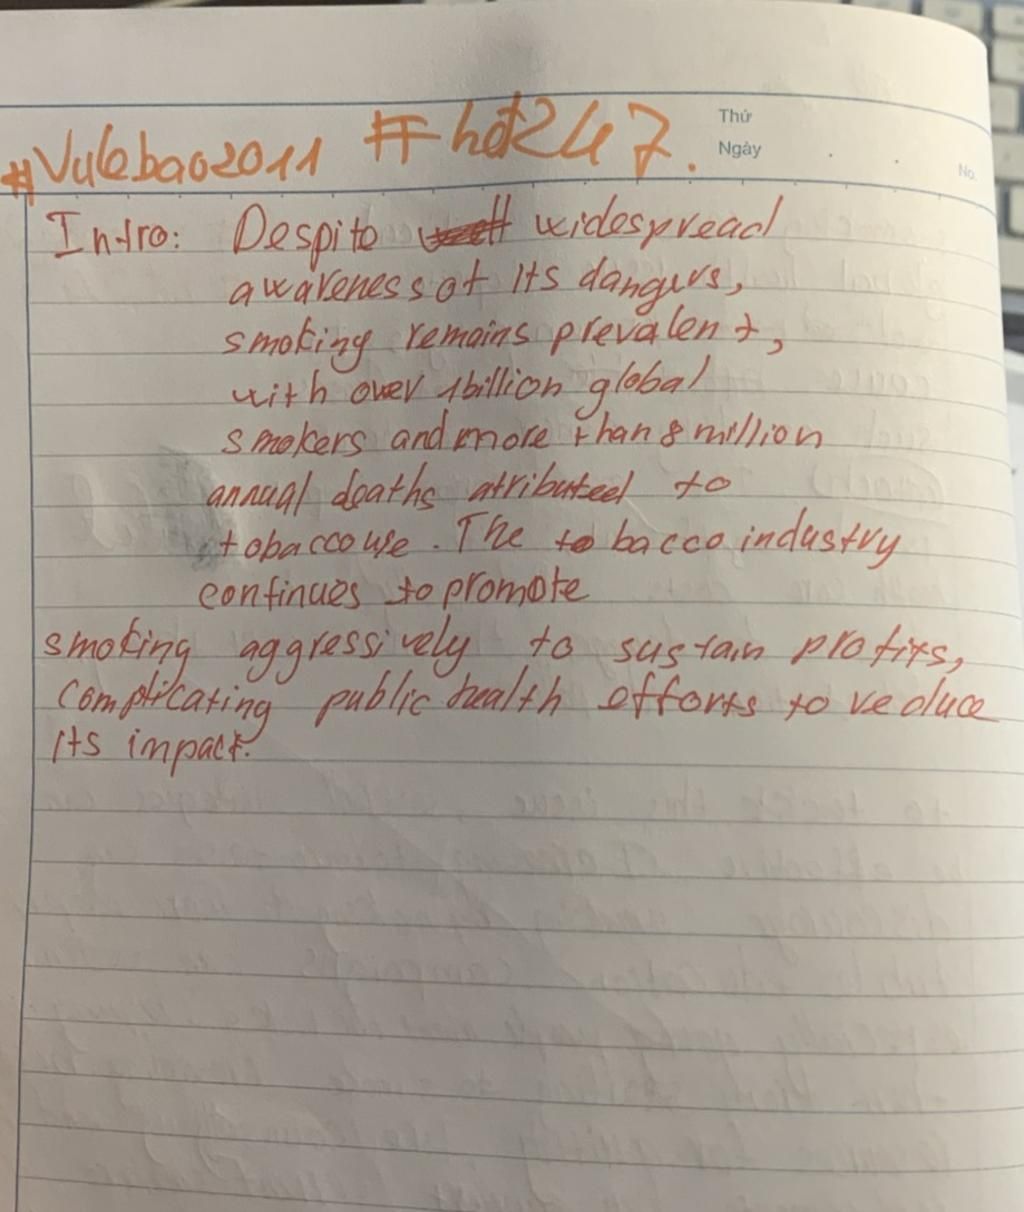 #Vulebao2011 #hot247.
Thứ
Ngày
No.
Intro: Despite widespread
awareness of its dangers,
smoking remains prevalent,
with over 1billion global
smokers and more than 8 million
annual deaths atributed to
tobacco use. The tobacco industry
continues to promote
smoking aggressively to sustain profits,
complicating public health efforts to reduce
its impact.